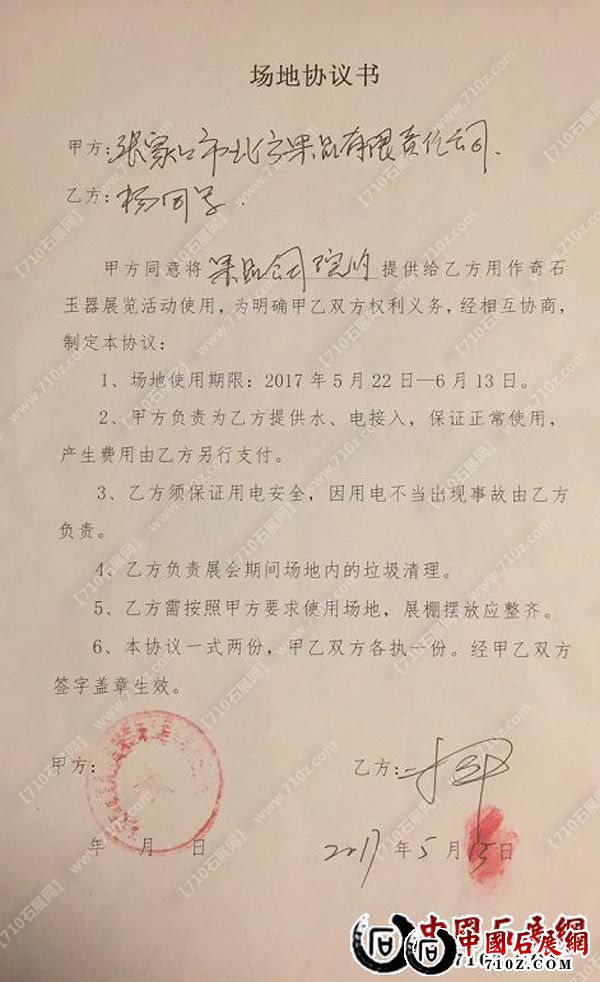 场地协议书
甲方:张家口市北方果品有限责任公司.
乙方:杨同学.
甲方同意将 果品公司院内 提供给乙方用作奇石
玉器展览活动使用,为明确甲乙双方权利义务,经相互协商,
制定本协议:
1、场地使用期限:2017年5月22日—6月13日。
2、甲方负责为乙方提供水、电接入,保证正常使用,
产生费用由乙方另行支付。
3、乙方须保证用电安全,因用电不当出现事故由乙方
负责。
4、乙方负责展会期间场地内的垃圾清理。
5、乙方需按照甲方要求使用场地,展棚摆放应整齐。
6、本协议一式两份,甲乙双方各执一份。经甲乙双方
签字盖章生效。
甲方: 乙方:
年 月 日 2017年5月15日
中國石展網
710z.com
【710石展网】 www.710z.com